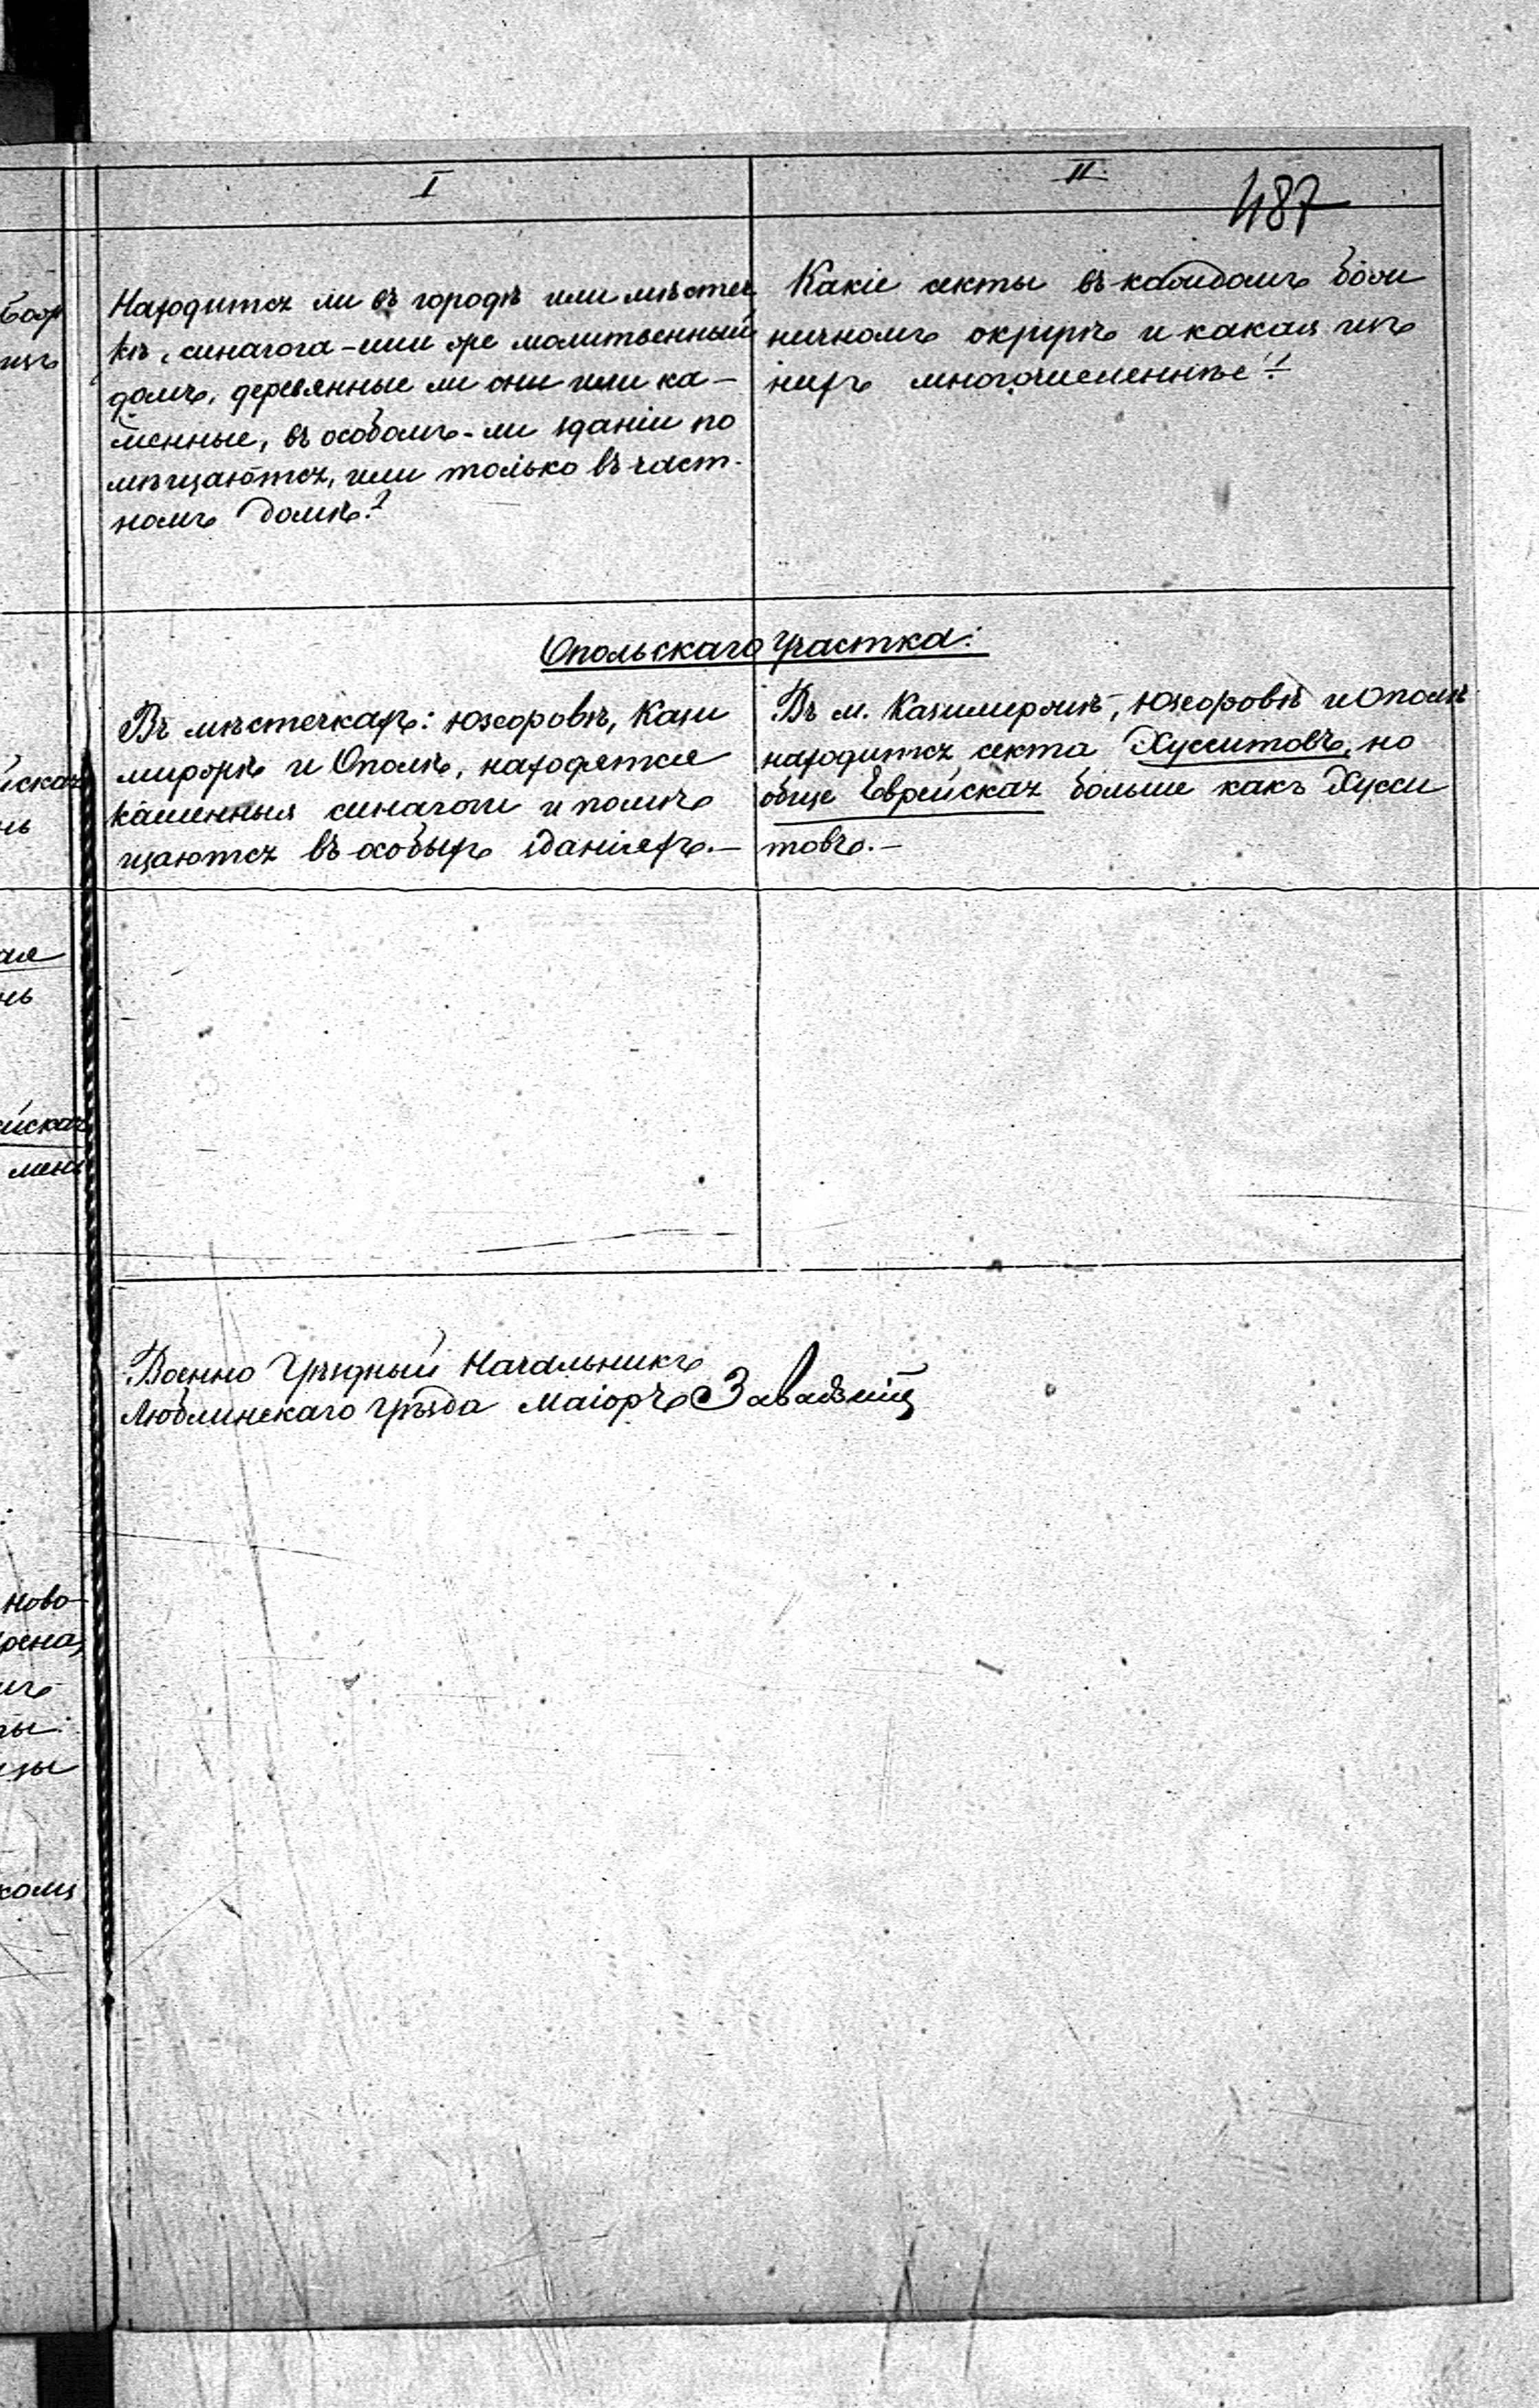 I
II.
487
Находится ли въ городѣ или местеч
кѣ, синагога-или же молитвенный
домъ, деревянные ли они или ка-
менные, въ особомъ-ли зданіи по
мѣщаются, или только въ част-
номъ домѣ?
Какіе секты въ каждомъ божни
ничномъ округѣ и какая изъ
нихъ многочисленнѣе?
Опольскаго участка:
Въ мѣстечкахъ: Юзефовѣ, Кази
миржѣ и Ополѣ, находятся
каменныя синагоги и помѣ
щаются въ особыхъ зданіяхъ.—
Въ м. Казимиржѣ, Юзефовѣ и Ополѣ
находится секта Хусситовъ, но
обще Еврейская больше какъ Хусси
товъ.—
йская
нь
ая
нь
йская
мень
Военно Уѣздный Начальникъ
Люблинскаго уѣзда Маіоръ
ново-